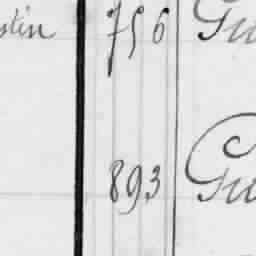 stin 756 Gu
893 Gu